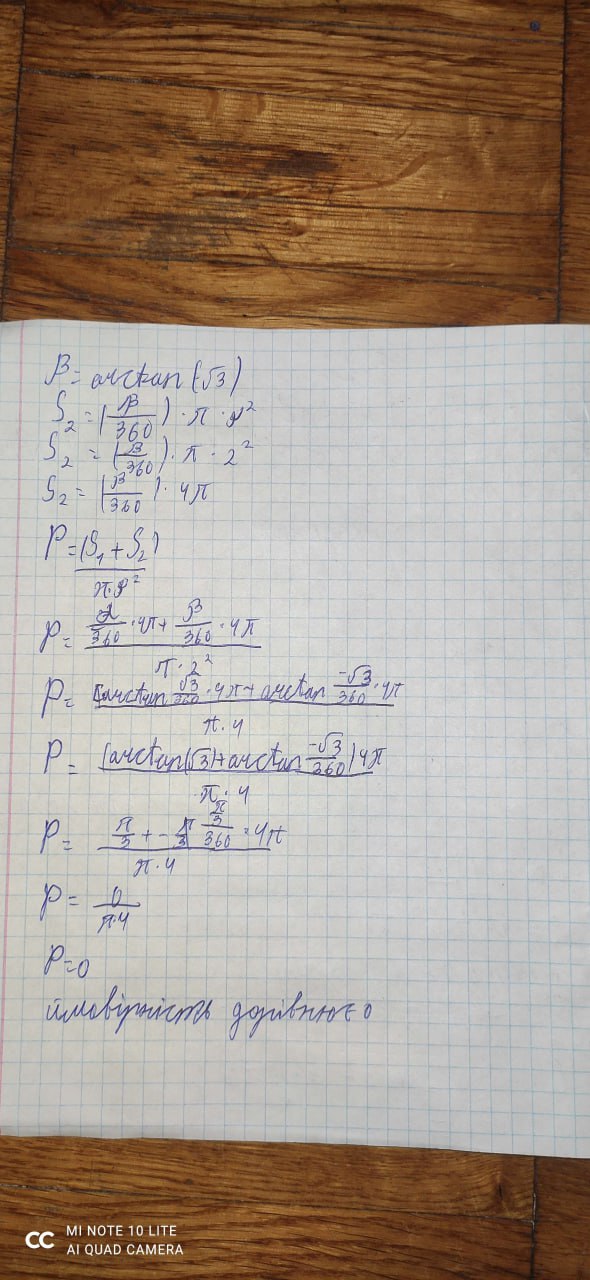 β = arctan (-√3)
S₂ = (β/360) · π · r²
S₂ = (β/360) · π · 2²
S₂ = (β/360) · 4π
P = (S₁ + S₂) / π · r²
P = (α/360 · 4π + β/360 · 4π) / π · 2²
P = [arctan √3/360 · 4π + arctan -√3/360 · 4π / π · 4
P = [arctan(√3) + arctan -√3/360) 4π / π · 4
P = π/3 + - π/3 π/3/360 · 4π / π · 4
P = 0 / π·4
P = 0
ймовірність дорівнює 0
CC MI NOTE 10 LITE
AI QUAD CAMERA